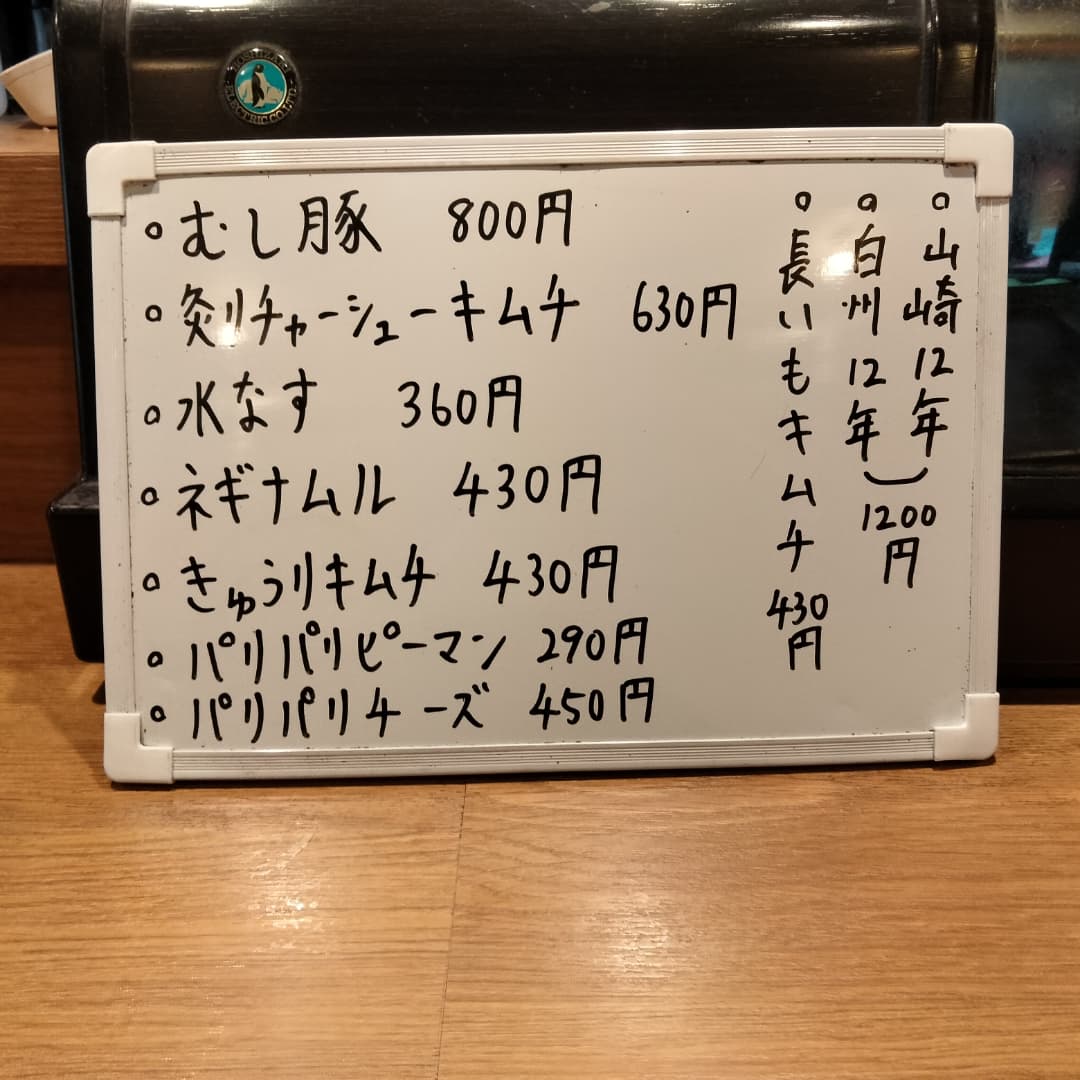 HOSHIZAKI
ELECTRIC CO.,LTD.
◦むし豚 800円
◦炙りチャーシューキムチ 630円
◦水なす 360円
◦ネギナムル 430円
◦きゅうりキムチ 430円
◦パリパリピーマン 290円
◦パリパリチーズ 450円
◦山崎12年
◦白州12年
1200円
◦長いもキムチ 430円